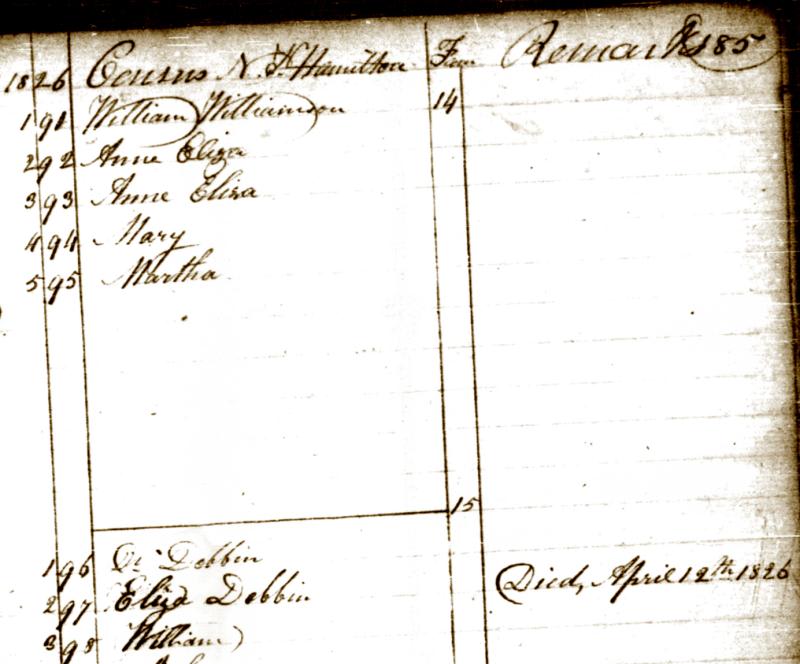 1826 Census N. Hamilton Fam Remarks 185
1 91 William Williamson 14
2 92 Anne Eliza
3 93 Anne Eliza
4 94 Mary
5 95 Martha
15
1 96 Debbin
2 97 Eliza Debbin Died, April 12th 1826
3 98 William